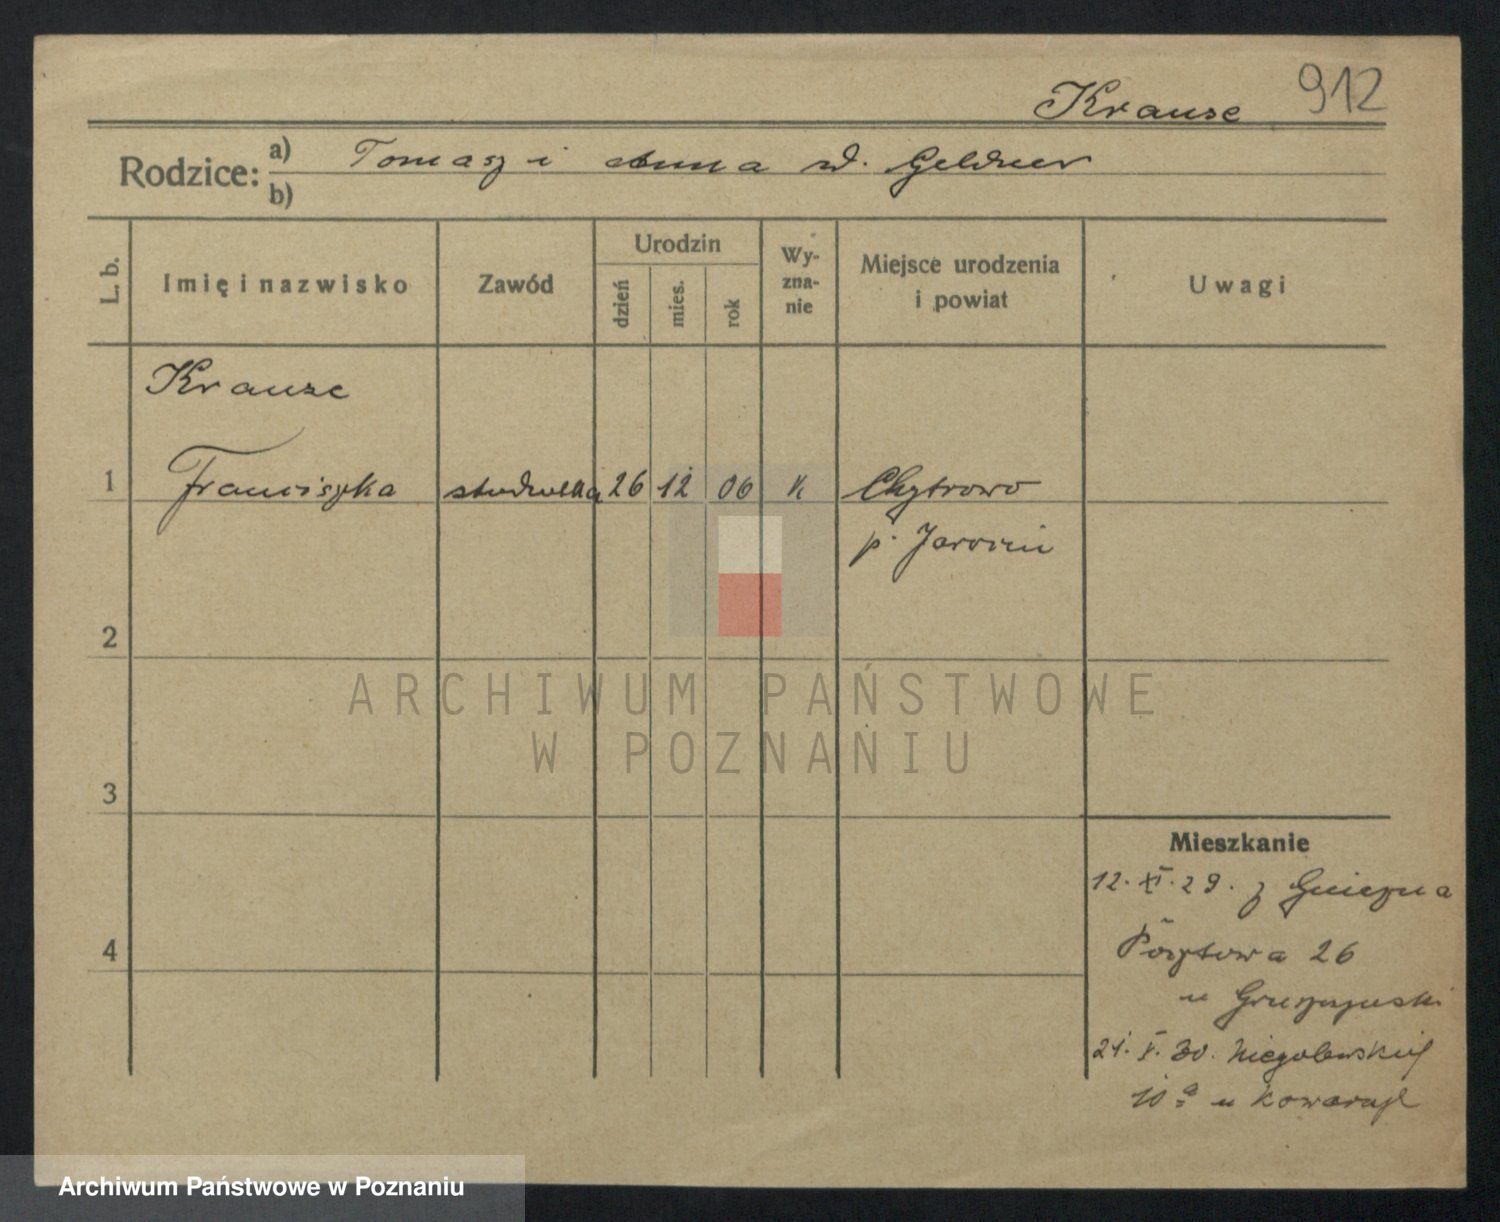 912
Krause
Rodzice: a) Tomasz i Anna d. Geldner
b)
L. b.
Imię i nazwisko
Zawód
Urodzin
dzień
mies.
rok
Wy-
zna-
nie
Miejsce urodzenia
i powiat
Uwagi
Krause
1 Franciszka studentka 26 12 06 k Chytrowo
p. Jarocin
2
3
4
Mieszkanie
12. XI. 29. z Gniezna
Pocztowa 26
u
21. V. 30. Niegolewskich
10a u
ARCHIWUM PAŃSTWOWE
W POZNANIU
Archiwum Państwowe w Poznaniu